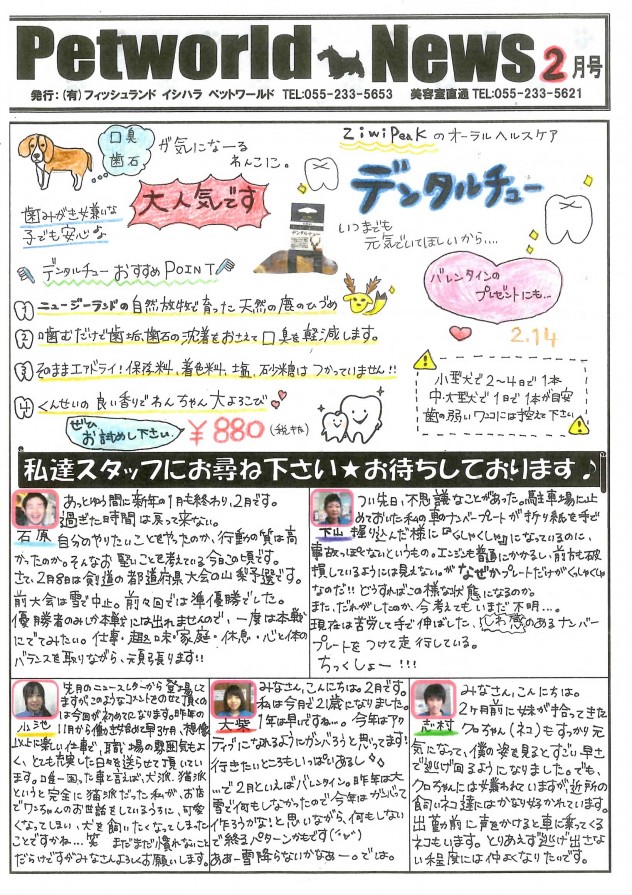 Petworld News 2月号
発行:(有)フィッシュランド イシハラ ペットワールド TEL:055-233-5653 美容室直通TEL:055-233-5621
口臭
歯石
が気になーる
わんこに。
大人気です
歯みがき嫌いな
子でも安心な
ZiwiPeakのオーラルヘルスケア
デンタルチュー
いつまでも
元気でいてほしいから…
デンタルチューおすすめPOINT
バレンタインの
プレゼントにも…
2.14
① ニュージーランドの自然放牧で育った天然の鹿のひづめ
② 噛むだけで歯垢、歯石の沈着をおさえて口臭を軽減します。
③ そのままエアドライ!保存料、着色料、塩、砂糖はつかっていません!!
④ くんせいの良い香りでわんちゃん大よろこび
ぜひ
お試め し下さい
¥880(税抜)
小型犬で2~4日で1本
中・大型犬で1日で1本が目安
歯の弱いワンコには控えて下さい
私達スタッフにお尋ね下さい★お待ちしております♪
石原
あっとゆう間に新年の1月も終わり、2月です。
過ぎた時間は戻って来ない。
自分のやりたいことをやったのか、行動の質は高
かったのか。そんなお堅いことを考えている今日この頃です。
さて、2月8日は剣道の都道府県大会の山梨予選です。
前大会は雪で中止。前々回では準優勝でした。
優勝者のみしか本戦には出れませんので、一度は本戦
にでてみたい。仕事・趣味・家庭・休息・心と体の
バランスを取りながら、頑張ります!!
下山
つい先日、不思議なことがあった。駐車場に止
めておいた私の車のナンバープレートが折り紙を手で
握り込んだ様に『くしゃくしゃ』になっているのに、
事故っぽくないというもの。エンジンも普通にかかるし、前方も破
損しているようには見えない。がなぜかプレートだけがくしゃくしゃ
なのだ!!どうすればこの様な状態になるのか。
また、だれがしたのか、今考えてもいまだ不明…。
現在は苦労して手で伸ばした、しわ感のあるナンバー
プレートをつけて走行している。
ちっくしょー!!!
小池
先月のニュースレターから登場して
ますが、このようなコメントをのせて頂くの
は今回が初めてになります。昨年の
11月から働き始めて早3ヶ月、想像
以上に楽しい仕事で、職場の雰囲気もよ
く、とても充実した日々を送らせて頂いてい
ます。唯一困った事と言えば、犬派、猫派
というと完全に猫派だった私が、お店
でワンちゃんのお世話をしているうちに、可愛
くなってしまい、犬を飼いたくなってしまった
ことですかね…笑 まだまだ慣れないこと
だらけですがみなさんよろしくお願いします。
大柴
みなさん、こんにちは。2月です。
私は今月で21歳になりました。
1年は早いですね…。今年はアク
ティブになれるようにガンバろうと思ってます!
行きたいところもいっぱいあるし
…で2月といえばバレンタイン。昨年は大
雪で何もしなかったので今年はガンバって
作ろうかな!と思いながら、何もしない
で終るパターンかもです
ああー雪降らないかなぁー。では。
志村
みなさん、こんにちは。
2ヶ月前に妹が拾ってきた
クロちゃん(ネコ)もすっかり元
気になって、僕の姿を見るとすごい早さ
で逃げ回るようになりました。でも、
クロちゃんには嫌われていますが近所の
飼いネコ達にはかなり好かれています。
出勤前に声をかけると車に乗ってくる
ネコもいます。とりあえず逃げ出さな
い程度には仲よくなりたいです。